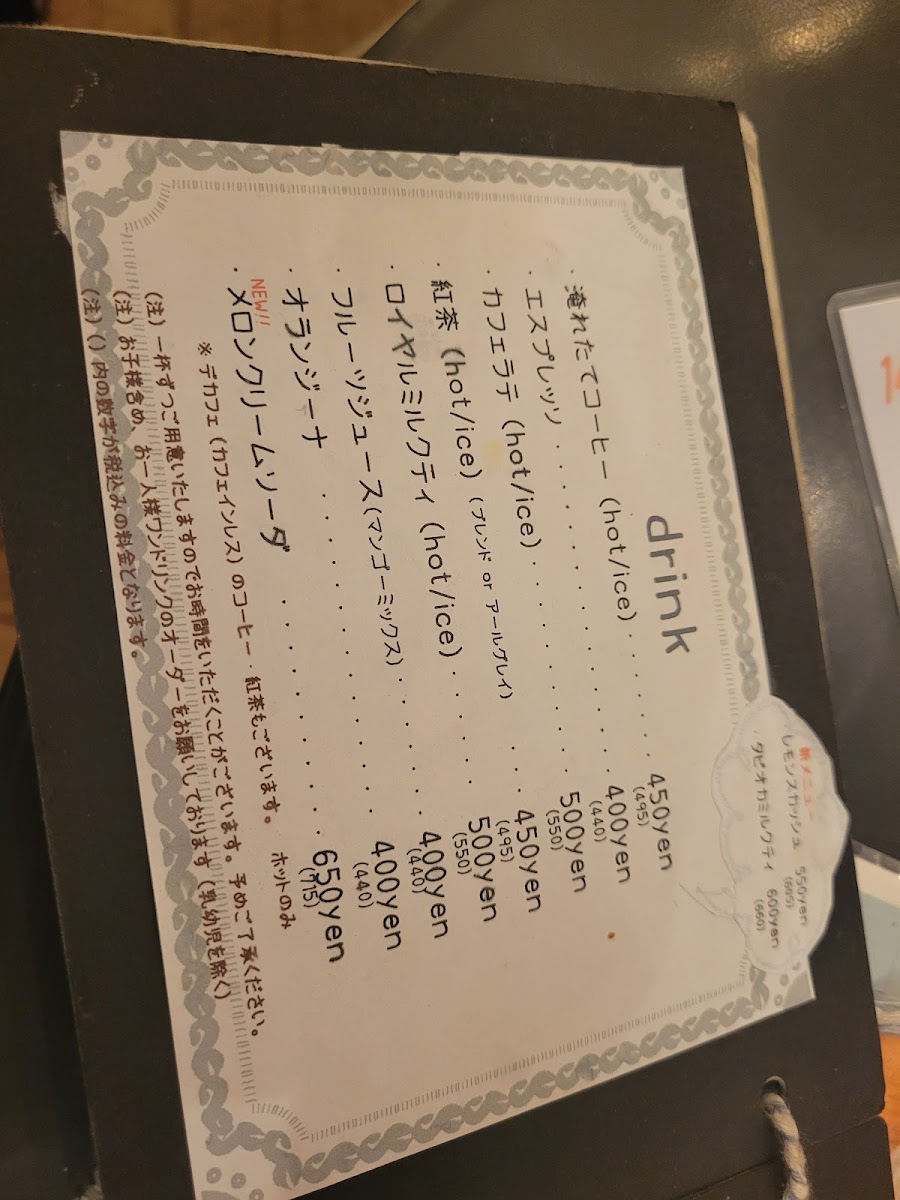 drink
新メニュー
・レモンスカッシュ 550yen
(605)
・タピオカミルクティ 600yen
(660)
・淹れたてコーヒー (hot/ice) . . . . . 450yen
(495)
・エスプレッソ . . . . . . . . . 400yen
(440)
・カフェラテ (hot/ice) . . . . . . . 500yen
(550)
・紅茶 (hot/ice) (ブレンド or アールグレイ) . . 450yen
(495)
・ロイヤルミルクティ (hot/ice) . . . . 500yen
(550)
・フルーツジュース(マンゴーミックス) . . . . 400yen
(440)
・オランジーナ . . . . . . . . . 400yen
(440)
NEW!!
・メロンクリームソーダ . . . . . . . . 650yen
(715)
※ デカフェ (カフェインレス) のコーヒー・紅茶もございます。 ホットのみ
(注) 一杯ずつご用意いたしますのでお時間をいただくことがございます。予めご了承ください。
(注) お子様含め、お一人様ワンドリンクのオーダーをお願いしております (乳幼児を除く)
(注) () 内の数字が税込みの料金となります。